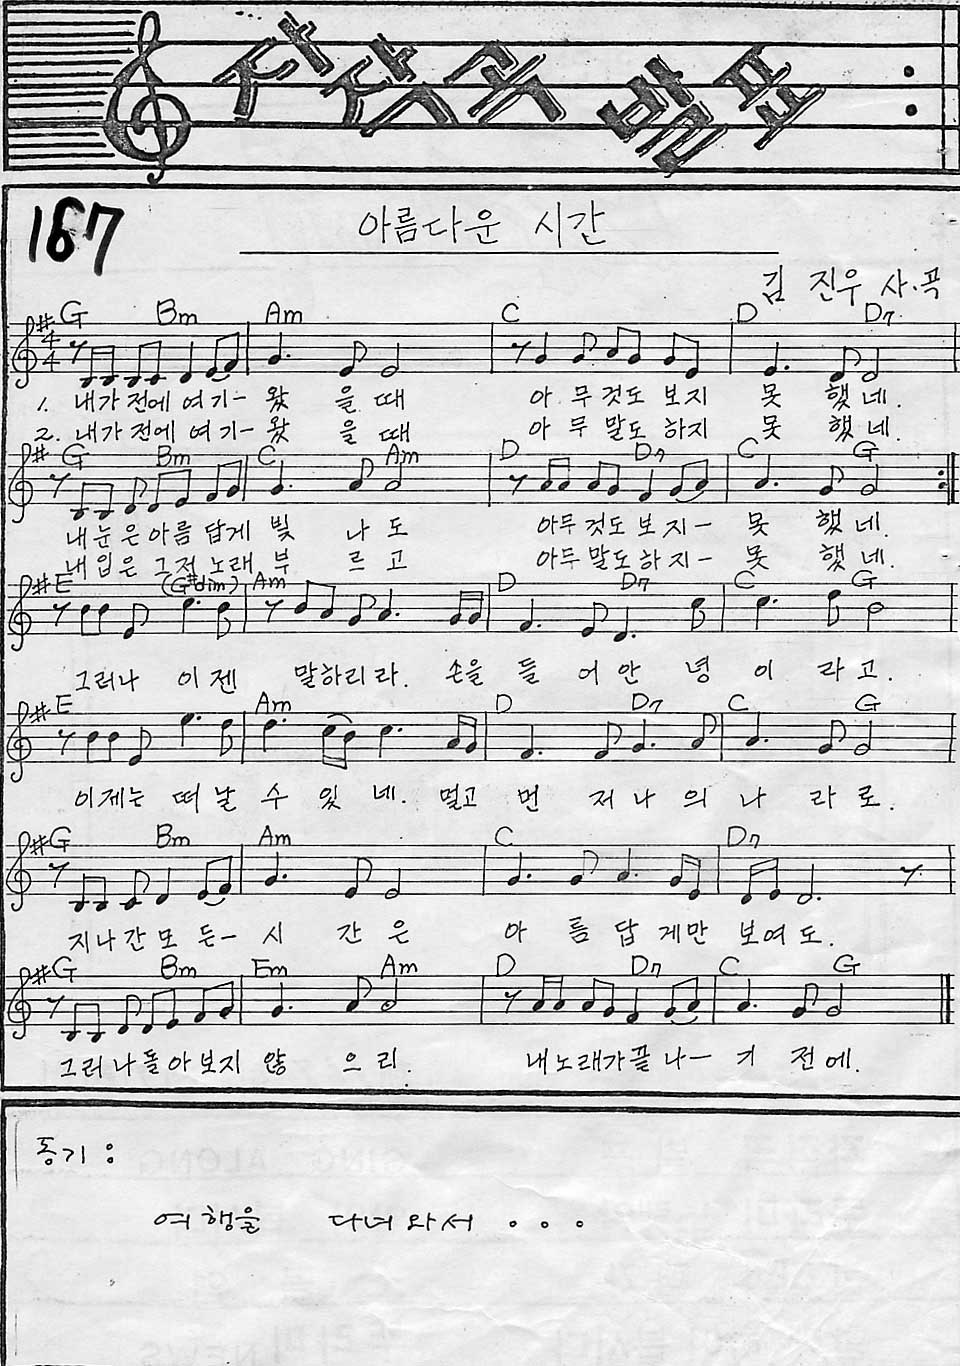 자작곡 발표
167
아름다운 시간
김진우 사.곡
G Bm Am C D D7
4/4
1. 내가 전에 여기- 왔을때 아무것도 보지 못했네.
2. 내가 전에 여기- 왔을때 아무말도 하지 못했네.
G Bm C Am D D7 C G
내눈은아름답게 빛나도 아무것도보지- 못했네.
내입은그저노래부르고 아무말도하지- 못했네.
E (G#dim) Am D D7 C G
그러나 이젠 말하리라. 손을 들어안녕이라고.
E Am D D7 C G
이제는 떠날 수 있네. 멀고 먼 저 나의 나라로.
G Bm Am C D7
지나간모든- 시간은 아름답게만 보여도.
G Bm Em Am D D7 C G
그러나돌아보지 않으리. 내노래가끝나-기 전에.
동기 :
여행을 다녀와서 ...